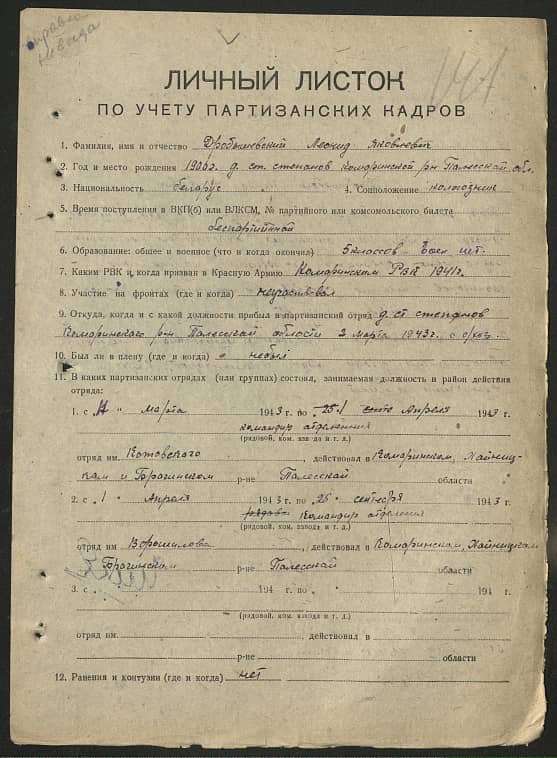 справка
не выда
141
ЛИЧНЫЙ ЛИСТОК
ПО УЧЕТУ ПАРТИЗАНСКИХ КАДРОВ
1. Фамилия, имя и отчество Дробышевский Леонид Яковлевич
2. Год и место рождения 1906г. д. ст. степанов Комаринской рн Палесской обл.
3. Национальность беларус 4. Соцположение колхозник
5. Время поступления в ВКП(б) или ВЛКСМ, № партийного или комсомольского билета
беспартийной
6. Образование: общее и военное (что и когда окончил) 5 классов. Воен. нет.
7. Каким РВК и когда призван в Красную Армию Комаринским РВК 1941г.
8. Участие на фронтах (где и когда) неучаствовал
9. Откуда, когда и с какой должности прибыл в партизанский отряд д. ст степанов
Комаринского р-н. Палесской области 2 марта 1943г. с с/хоз.
10. Был ли в плену (где и когда) небыл
11. В каких партизанских отрядах (или группах) состоял, занимаемая должность и район действия
отряда:
1. с " марта 1943 г. по 1 Апреля 1943 г.
командир отделения
(рядовой, ком. взвода и т. д.)
отряд им Котовского, действовал в Комаринском, Хайниц-
ком и Брагинском р-не Палесской области
2. с 1 Апреля 1943 г. по 25 сентября 1943 г.
командир отделения
(рядовой, ком. взвода и т. д.)
отряд им Ворошилова, действовал в Комаринском, Хайницком
Брагинском р-не Палесской области
3. с 194 г. по 194 г.
(рядовой, ком. взвода и т. д.)
отряд им. , действовал в
р-не области
12. Ранения и контузии (где и когда) нет